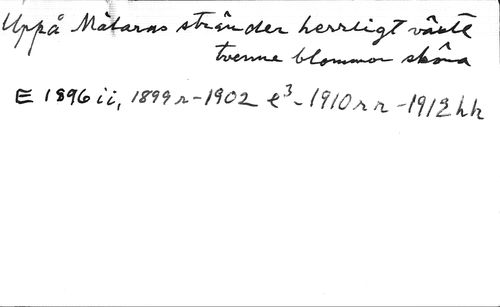 Uppå Mälarns stränder herrligt växte
tvenne blommor sköna
E 1896 ii, 1899 r - 1902 e³ - 1910 r r - 1912 h h